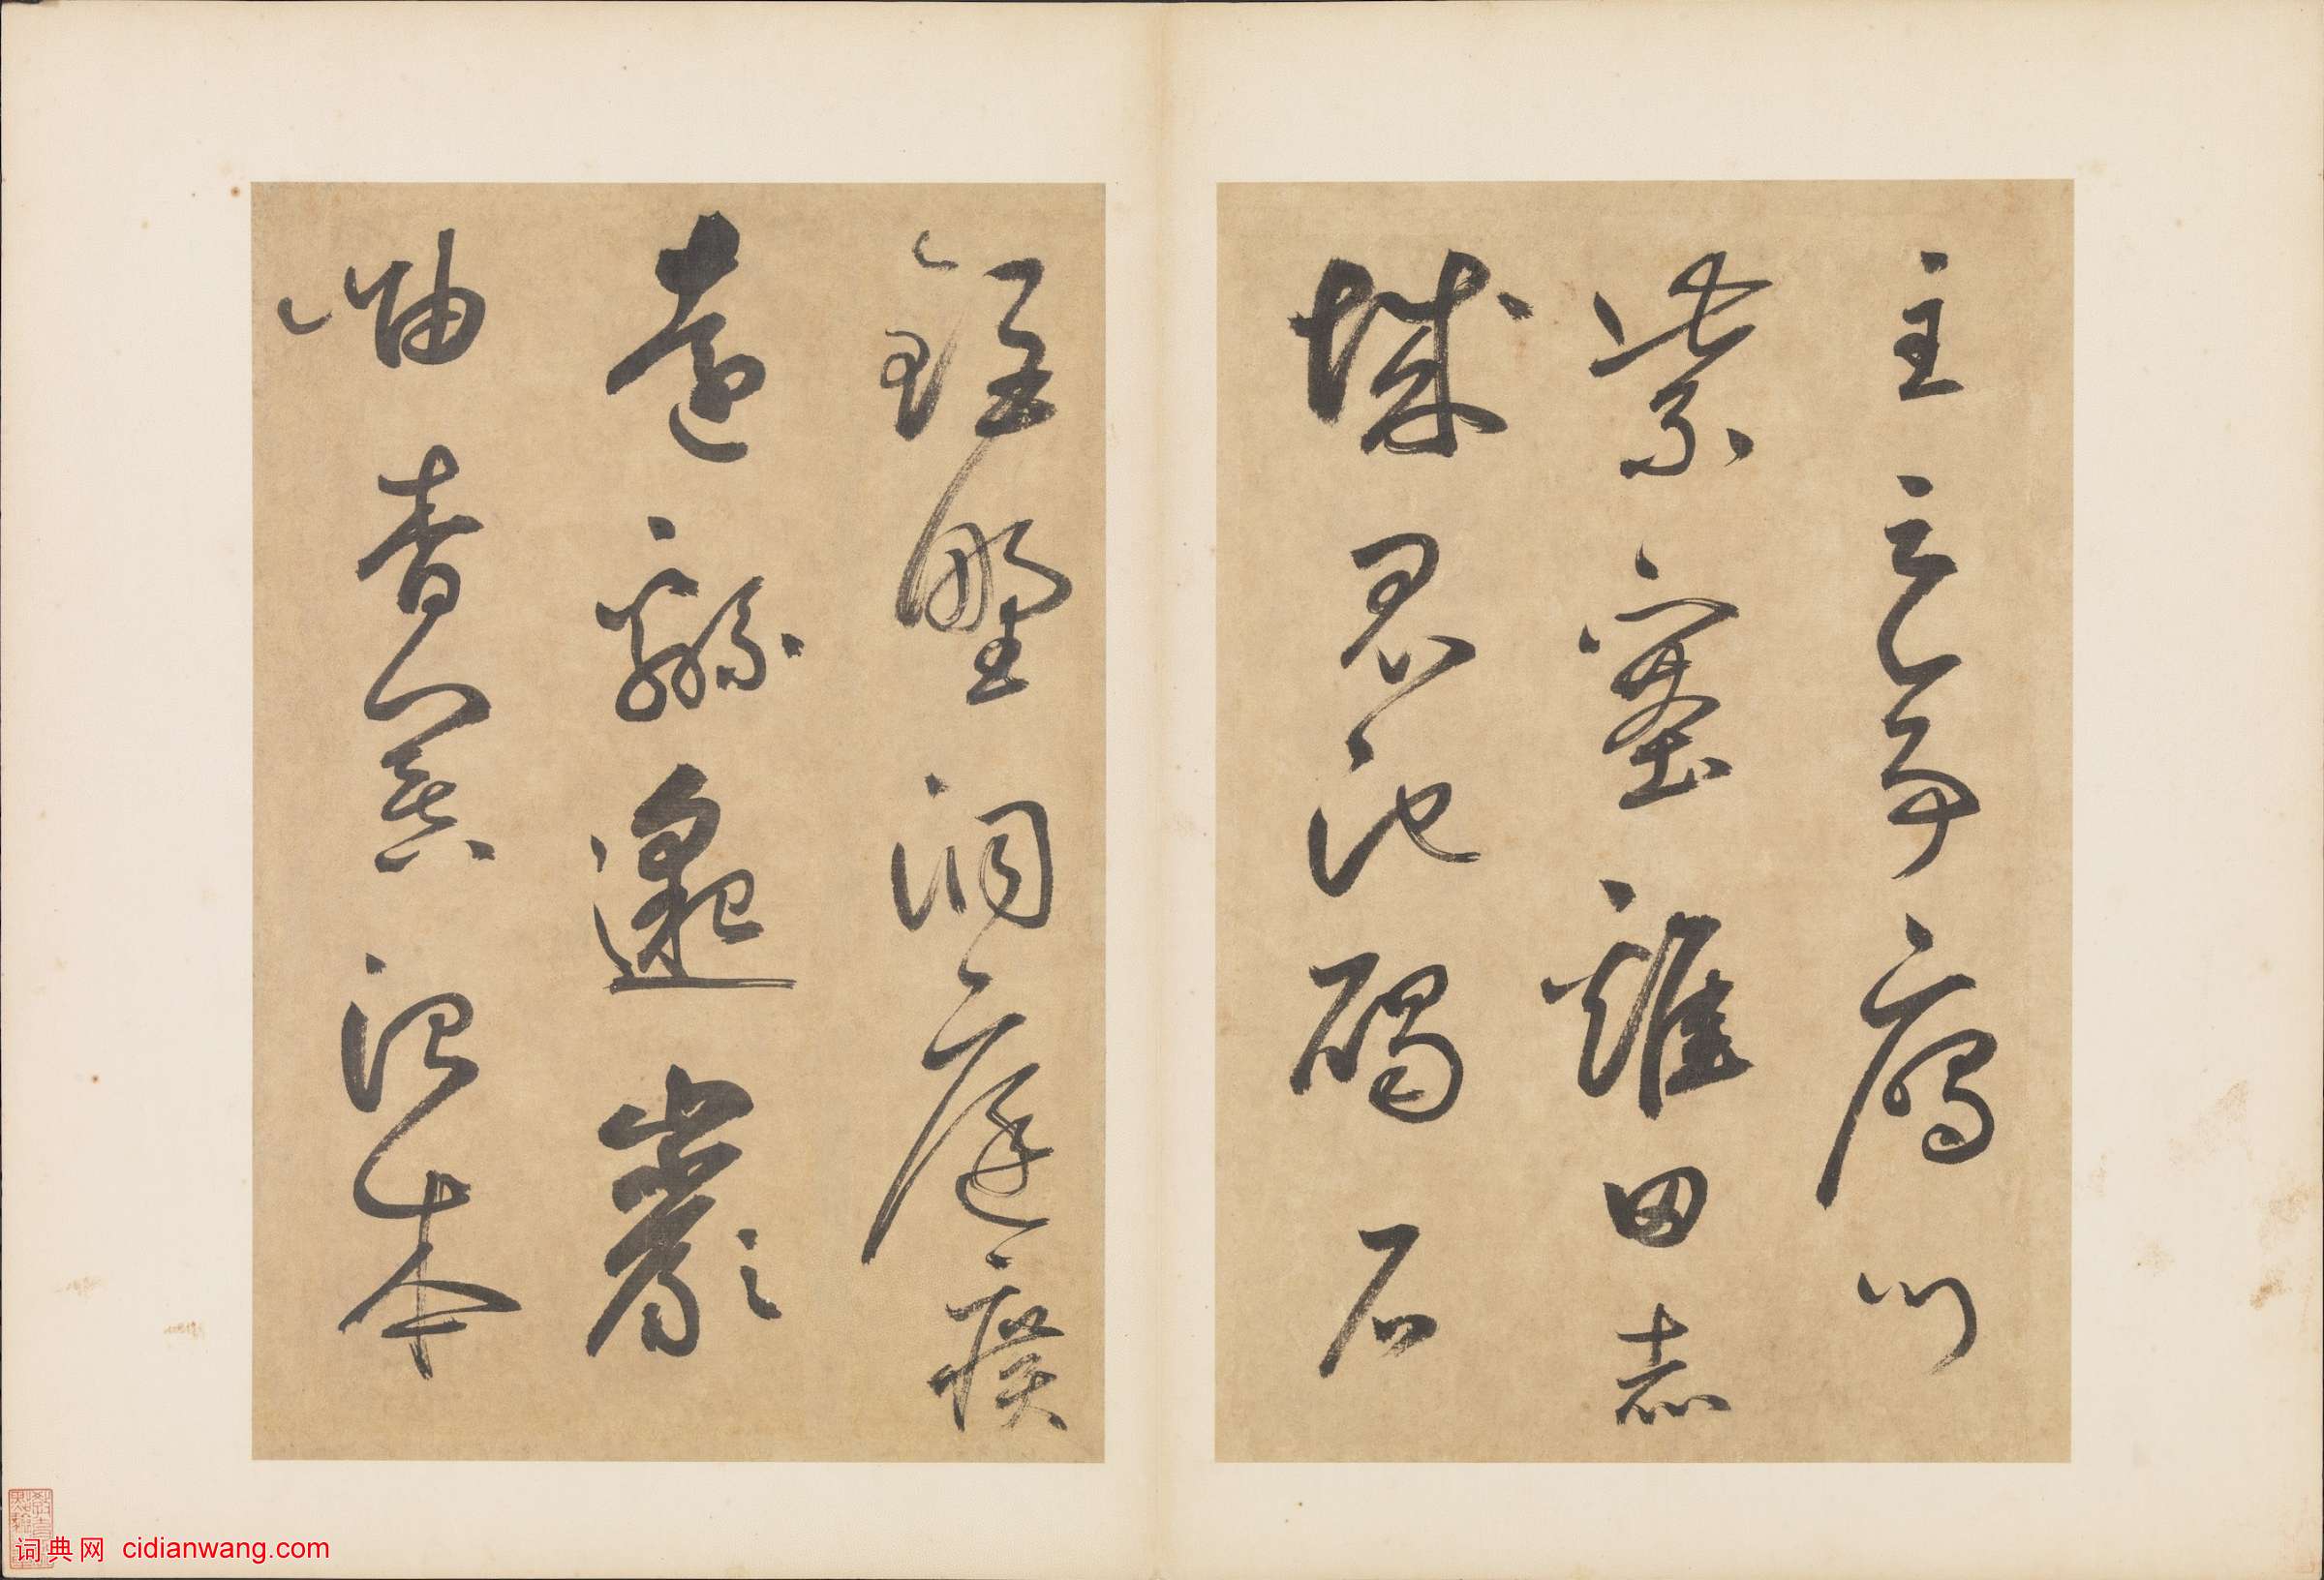 主云亭雁門
紫塞雞田赤
城昆池碣石
鉅野洞庭曠
遠緜邈巖
岫杳冥治本
词典网 cidianwang.com